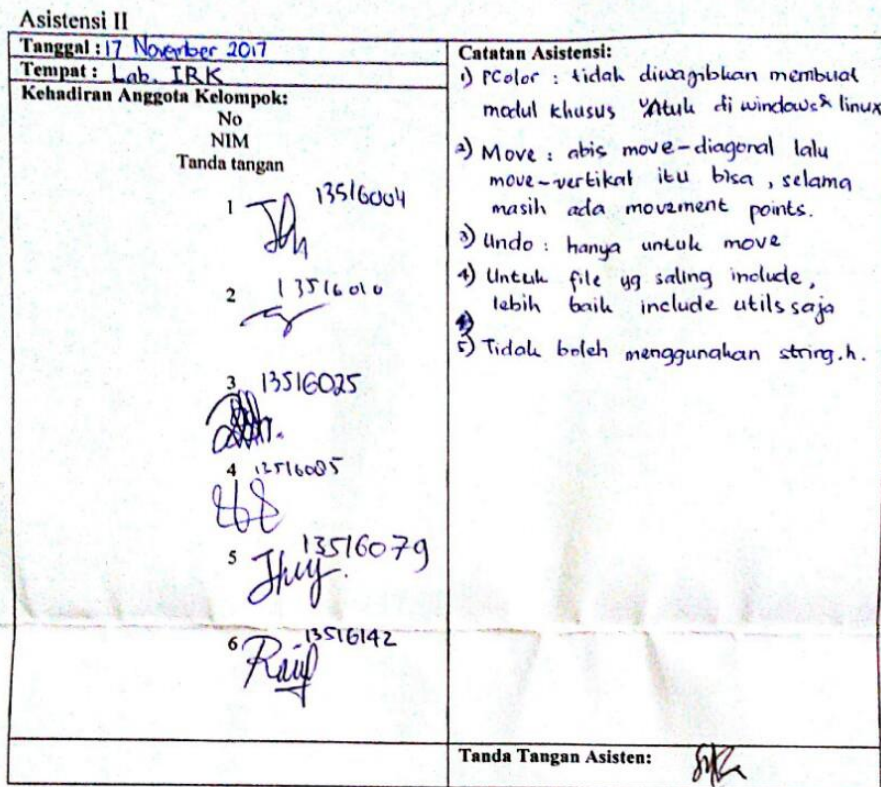 Asistensi II
Tanggal : 17 November 2017
Tempat : Lab. IRK
Kehadiran Anggota Kelompok:
No
NIM
Tanda tangan
1 13516004
2 13516010
3 13516025
4 13516085
5 13516079
6 13516142
Catatan Asistensi:
1) PColor : tidak diwajibkan membuat
modul khusus untuk di windows & linux
2) Move : abis move-diagonal lalu
move-vertikal itu bisa, selama
masih ada movement points.
3) Undo : hanya untuk move
4) Untuk file yg saling include,
lebih baik include utils saja
5) Tidak boleh menggunakan string.h.
Tanda Tangan Asisten: